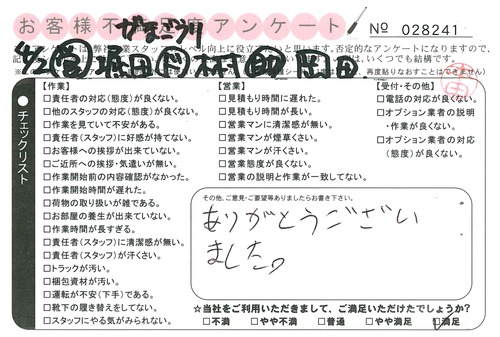 お客様不満足度アンケート
№ 028241
がまごうり
堀田
村
岡田
チェックリスト
【作業】
□責任者の対応(態度)が良くない。
□他のスタッフの対応(態度)が良くない。
□作業を見ていて不安がある。
□責任者(スタッフ)に好感が持てない。
□お客様への挨拶が出来ていない。
□ご近所への挨拶・気遣いが無い。
□作業開始前の内容確認がなかった。
□作業開始時間が遅れた。
□荷物の取り扱いが雑である。
□お部屋の養生が出来ていない。
□作業時間が長すぎる。
□責任者(スタッフ)に清潔感が無い。
□責任者(スタッフ)が汗くさい。
□トラックが汚い。
□梱包資材が汚い。
□運転が不安(下手)である。
□靴下の履き替えをしてない。
□スタッフにやる気がみられない。
【営業】
□見積もり時間に遅れた。
□見積もり時間が長い。
□営業マンに清潔感が無い。
□営業マンが煙草くさい。
□営業マンが汗くさい。
□営業態度が良くない。
□営業の説明と作業が一致してない。
【受付・その他】
□電話の対応が良くない。
□オプション業者の説明
・作業が良くない。
□オプション業者の対応
(態度)が良くない。
その他、ご意見・ご要望等ありましたらお書き下さい。
ありがとうござい
ました。
☆当社をご利用いただきまして、ご満足いただけたでしょうか?
□不満 □やや不満 □普通 □やや満足 □満足